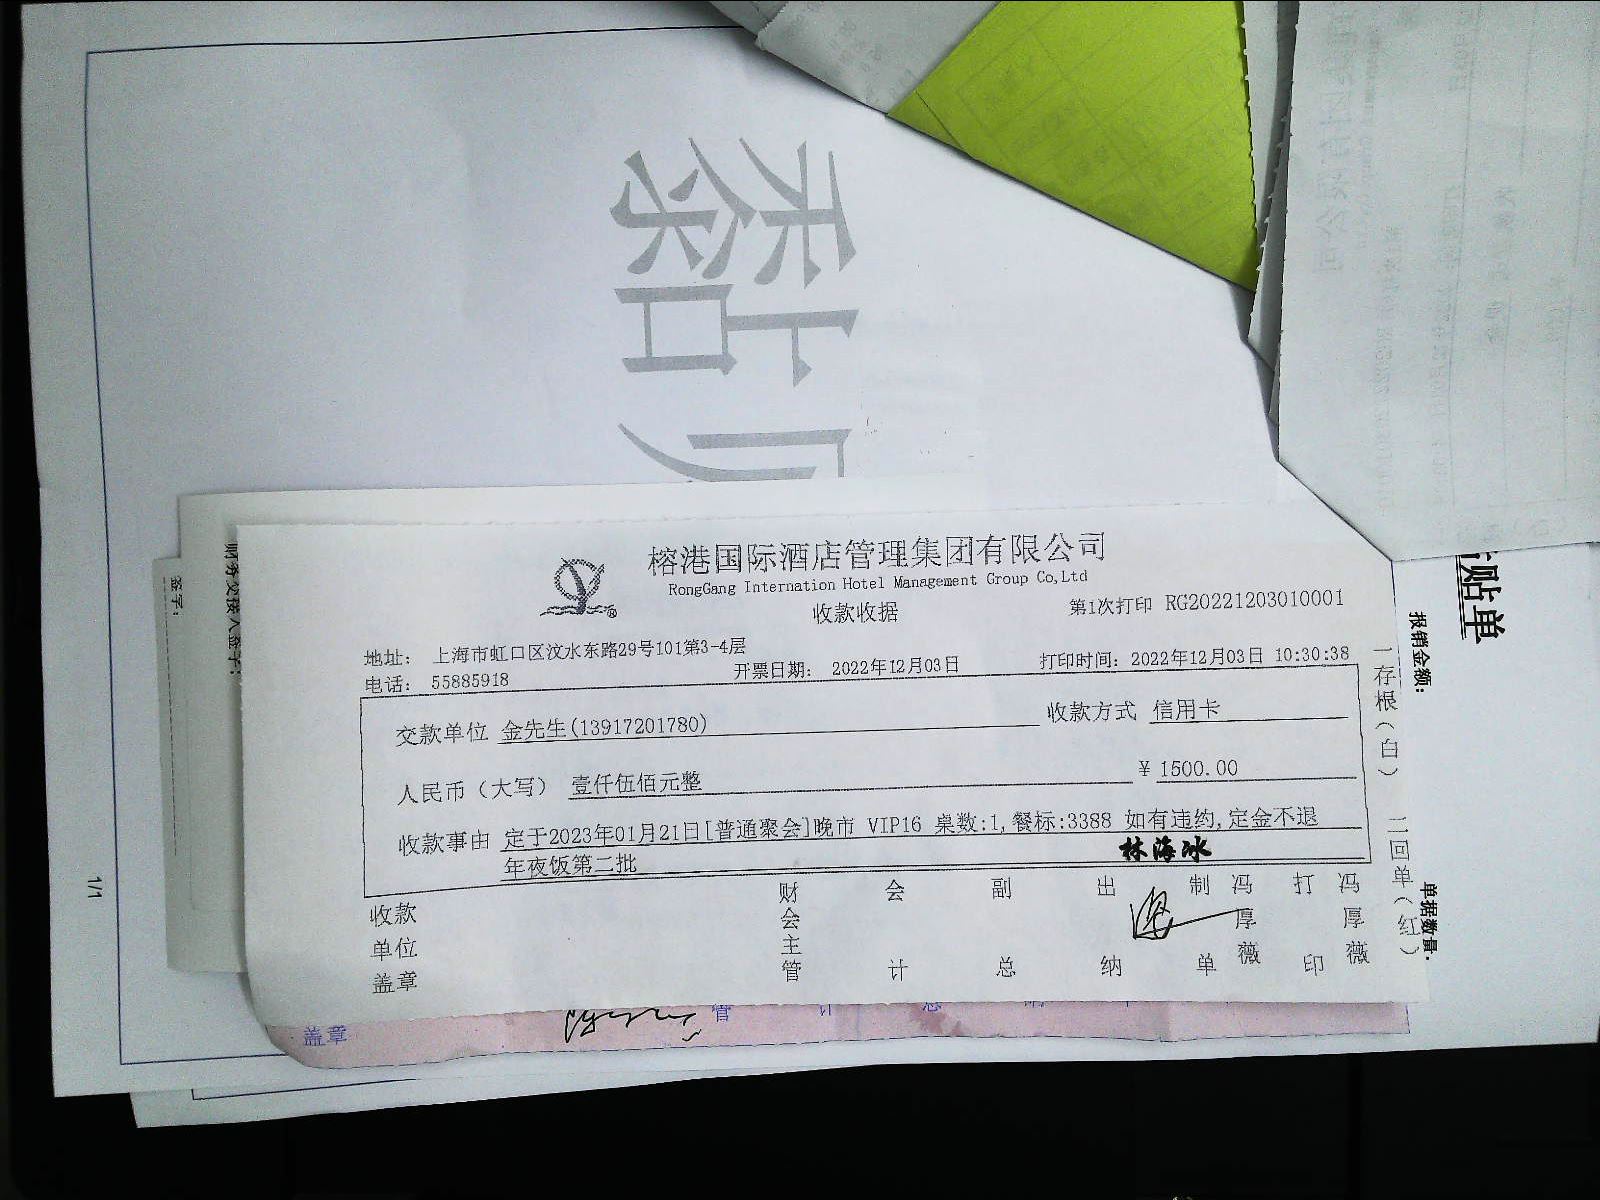 榕港国际酒店管理集团有限公司
RongGang Internation Hotel Management Group Co,Ltd
收款收据
第1次打印 RG20221203010001
地址： 上海市虹口区汶水东路29号101第3-4层
电话： 55885918
开票日期： 2022年12月03日
打印时间：2022年12月03日 10:30:38
交款单位 金先生(13917201780)
收款方式 信用卡
人民币（大写） 壹仟伍佰元整
¥ 1500.00
收款事由 定于2023年01月21日[普通聚会]晚市 VIP16 桌数:1,餐标:3388 如有违约,定金不退
年夜饭第二批
林海冰
收款单位盖章
财会主管
会计
副总
出纳
制单
冯厚薇
打印
冯厚薇
一存根（白）
二回单（红）
盖章
管
计
总
粘贴
贴单
报销金额:
单据数量:
财务交接人签字:
签字:
1/1